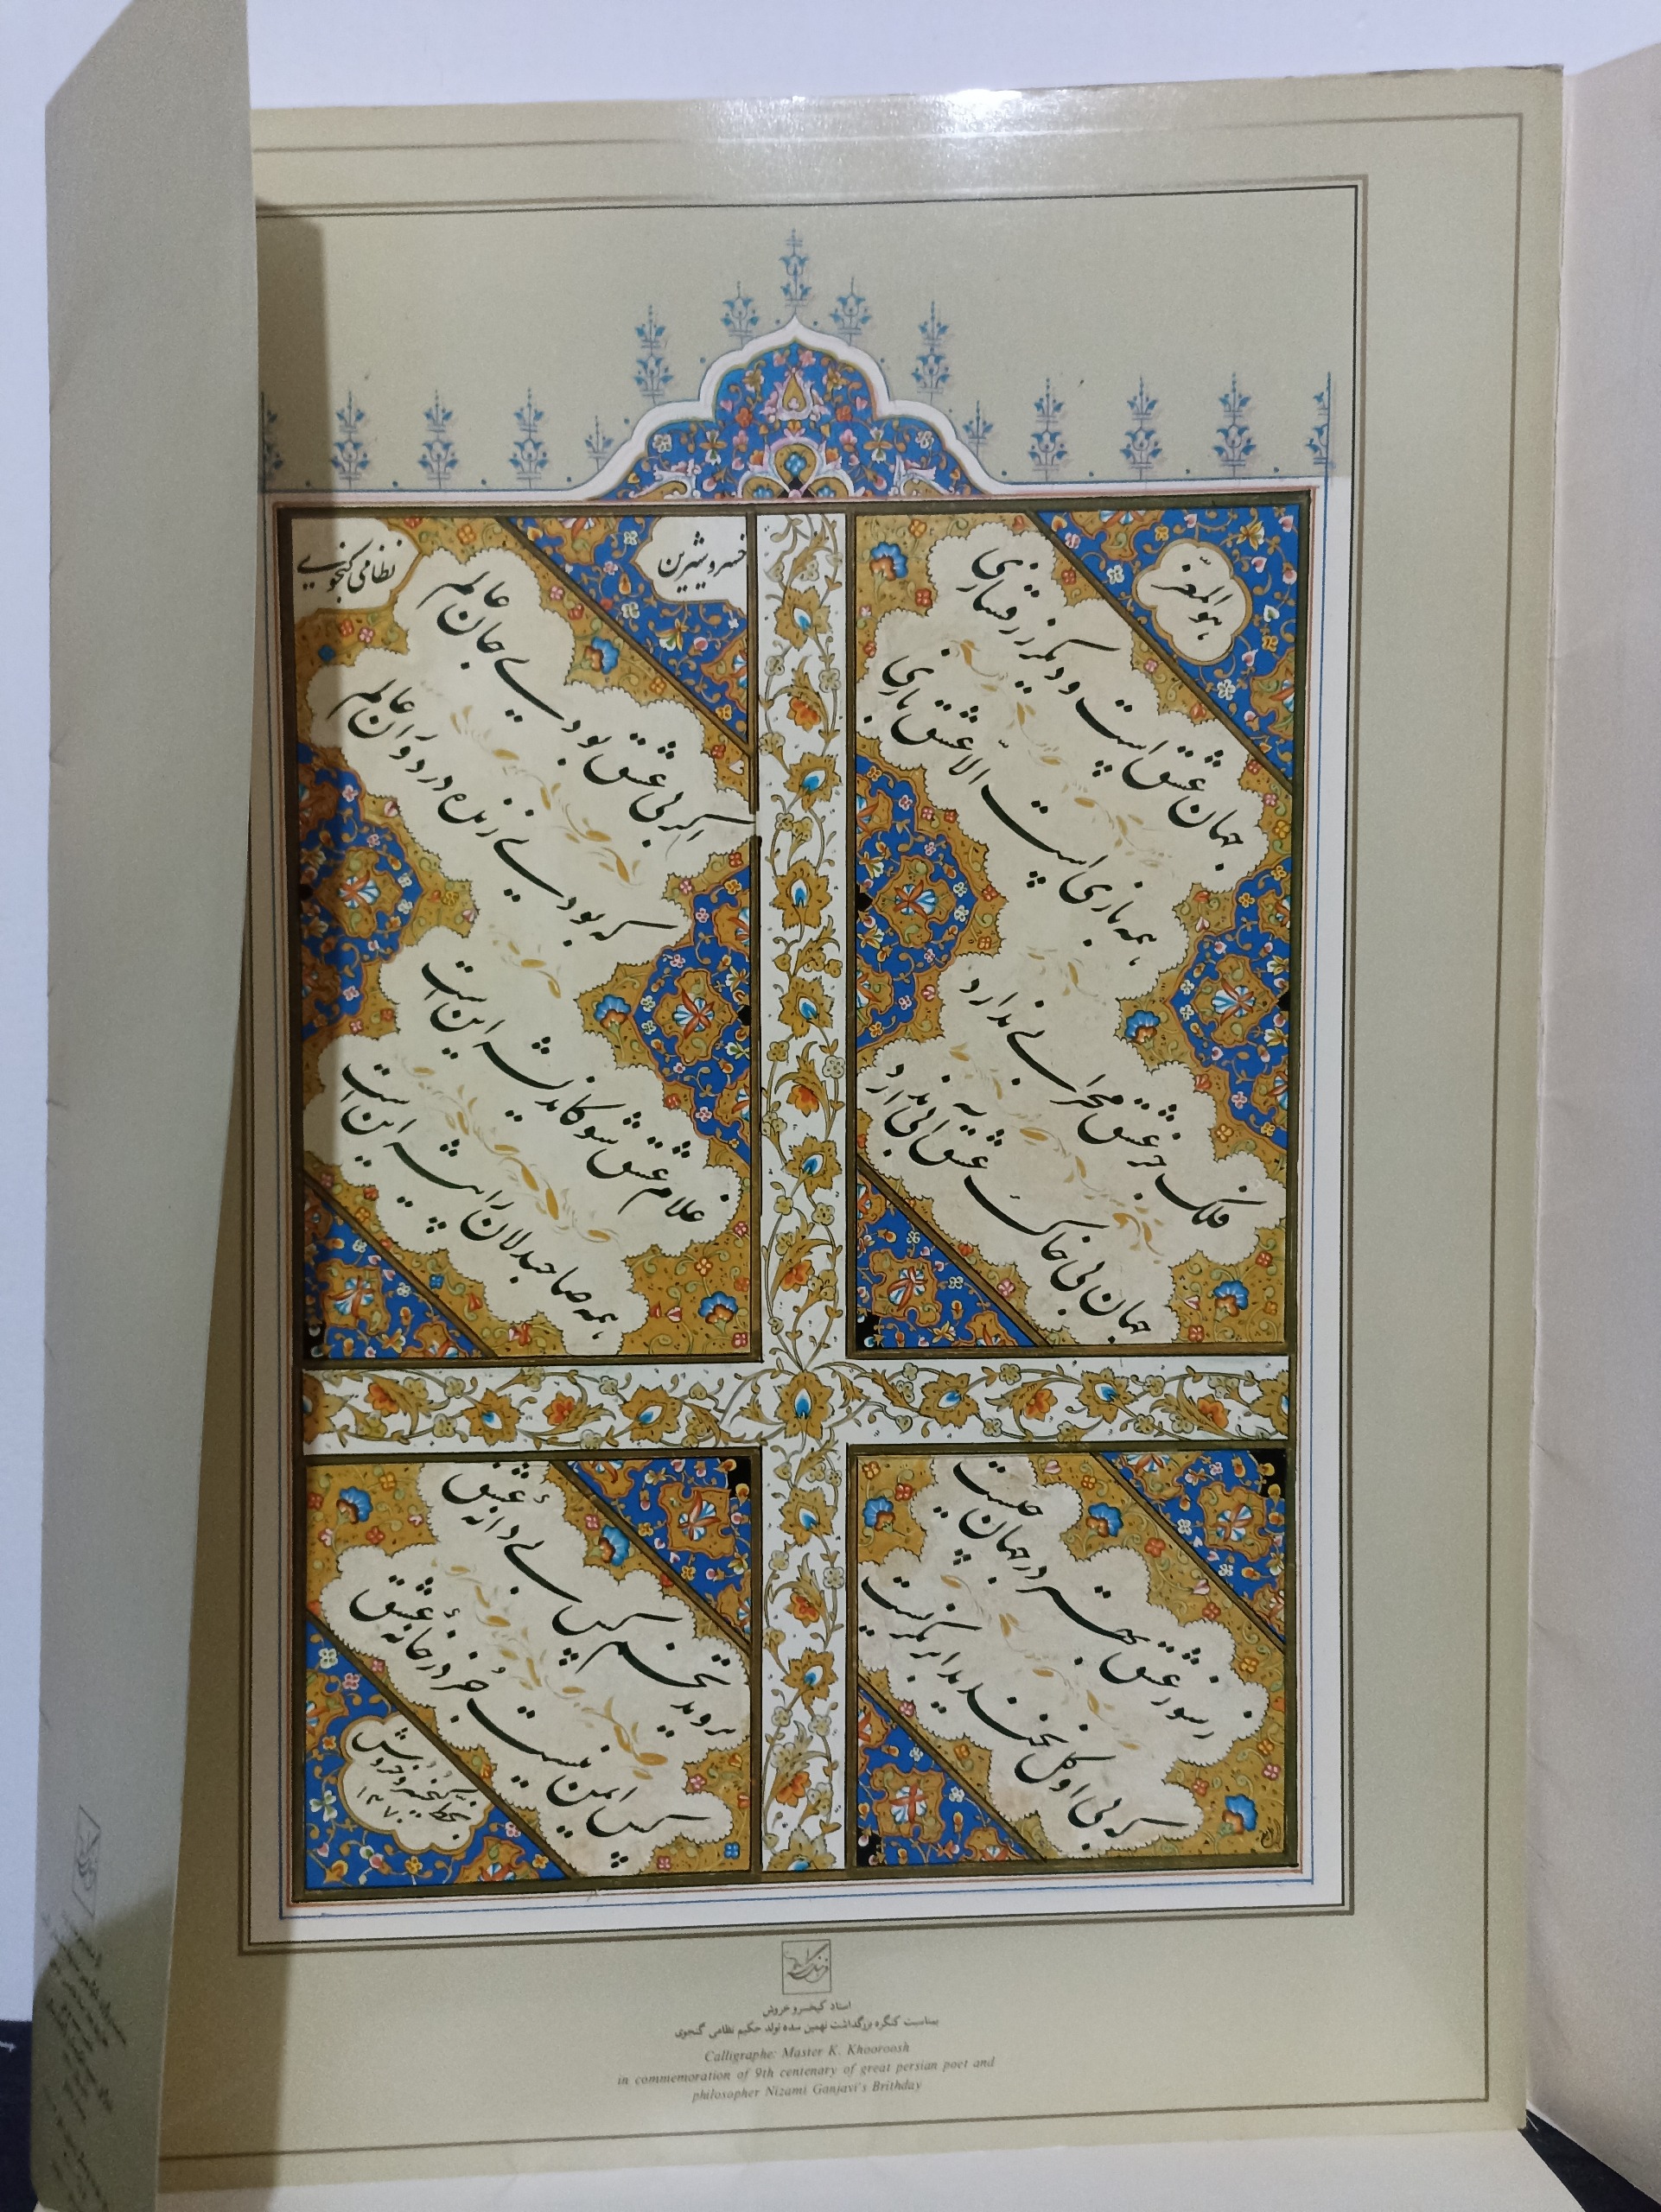 هوالمعز
جهان عشق است و دیگر زرق سازی
همه بازی است الّا عشق بازی
فلک جز عشق محرابی ندارد
جهان بی خاک عشق آبی ندارد
خسرو شیرین
نظامی گنجوی
اگر بی عشق بودی جان عالم
که بودی زنده در دوران عالم
غلام عشق شو کاندیشه این است
همه صاحبدلان را پیشه این است
ز سوز عشق بهتر در جهان چیست
که بی او گل نخندید ابر نگریست
نروید تخم کس بی دانهٔ عشق
کس ایمن نیست جُز در خانهٔ عشق
بخط کیخسرو خروش
۱۳۷۰
استاد کیخسرو خروش
بمناسبت کنگره بزرگداشت نهمین سده تولد حکیم نظامی گنجوی
Calligraphe: Master K. Khooroosh
in commemoration of 9th centenary of great persian poet and
philosopher Nizami Ganjavi's Brithday